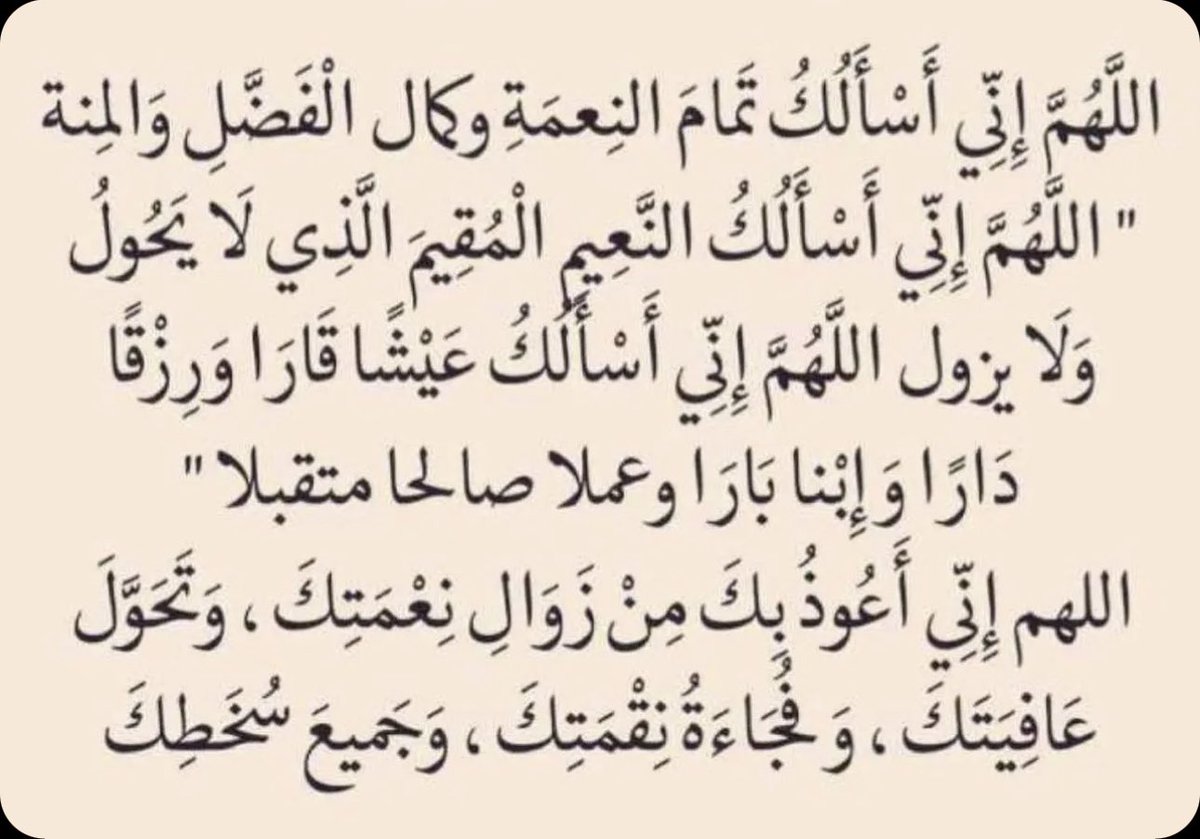 اللَّهُمَّ إِنِّي أَسْأَلُكُ تَمَامَ النِعمَةِ وكمال الْفَضَّلِ وَالمِنة
" اللَّهُمَّ إِنِّي أَسْأَلُكُ النَّعِيمِ الْمُقِيمَ الَّذِي لَا يَحُولُ
وَلَا يزول اللَّهُمَّ إِنِّي أَسْأَلُكُ عَيْشًا قَارَا وَرِزْقًا
دَارًا وَإِبْنا بَارَا وعملا صالحا متقبلا "
اللهم إِنِّي أَعُوذُ بِكَ مِنْ زَوَالِ نِعْمَتِكَ ، وَتَحَوَّلَ
عَافِيَتَكَ ، وَ فُجَاءَةُ نِقْمَتِكَ ، وَجَمِيعَ سُخَطِكَ